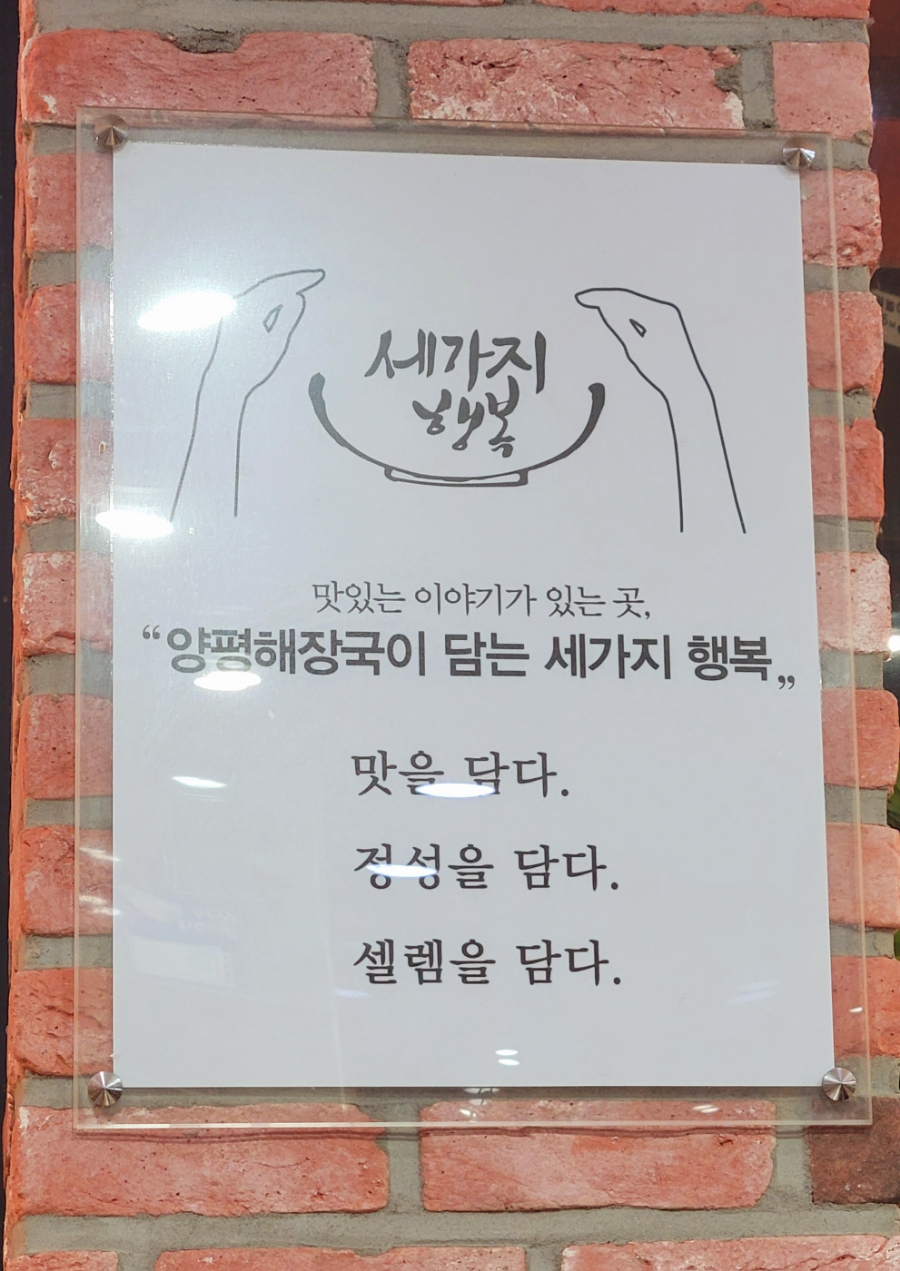 세가지
행복
맛있는 이야기가 있는 곳,
“양평해장국이 담는 세가지 행복„
맛을 담다.
정성을 담다.
셀렘을 담다.